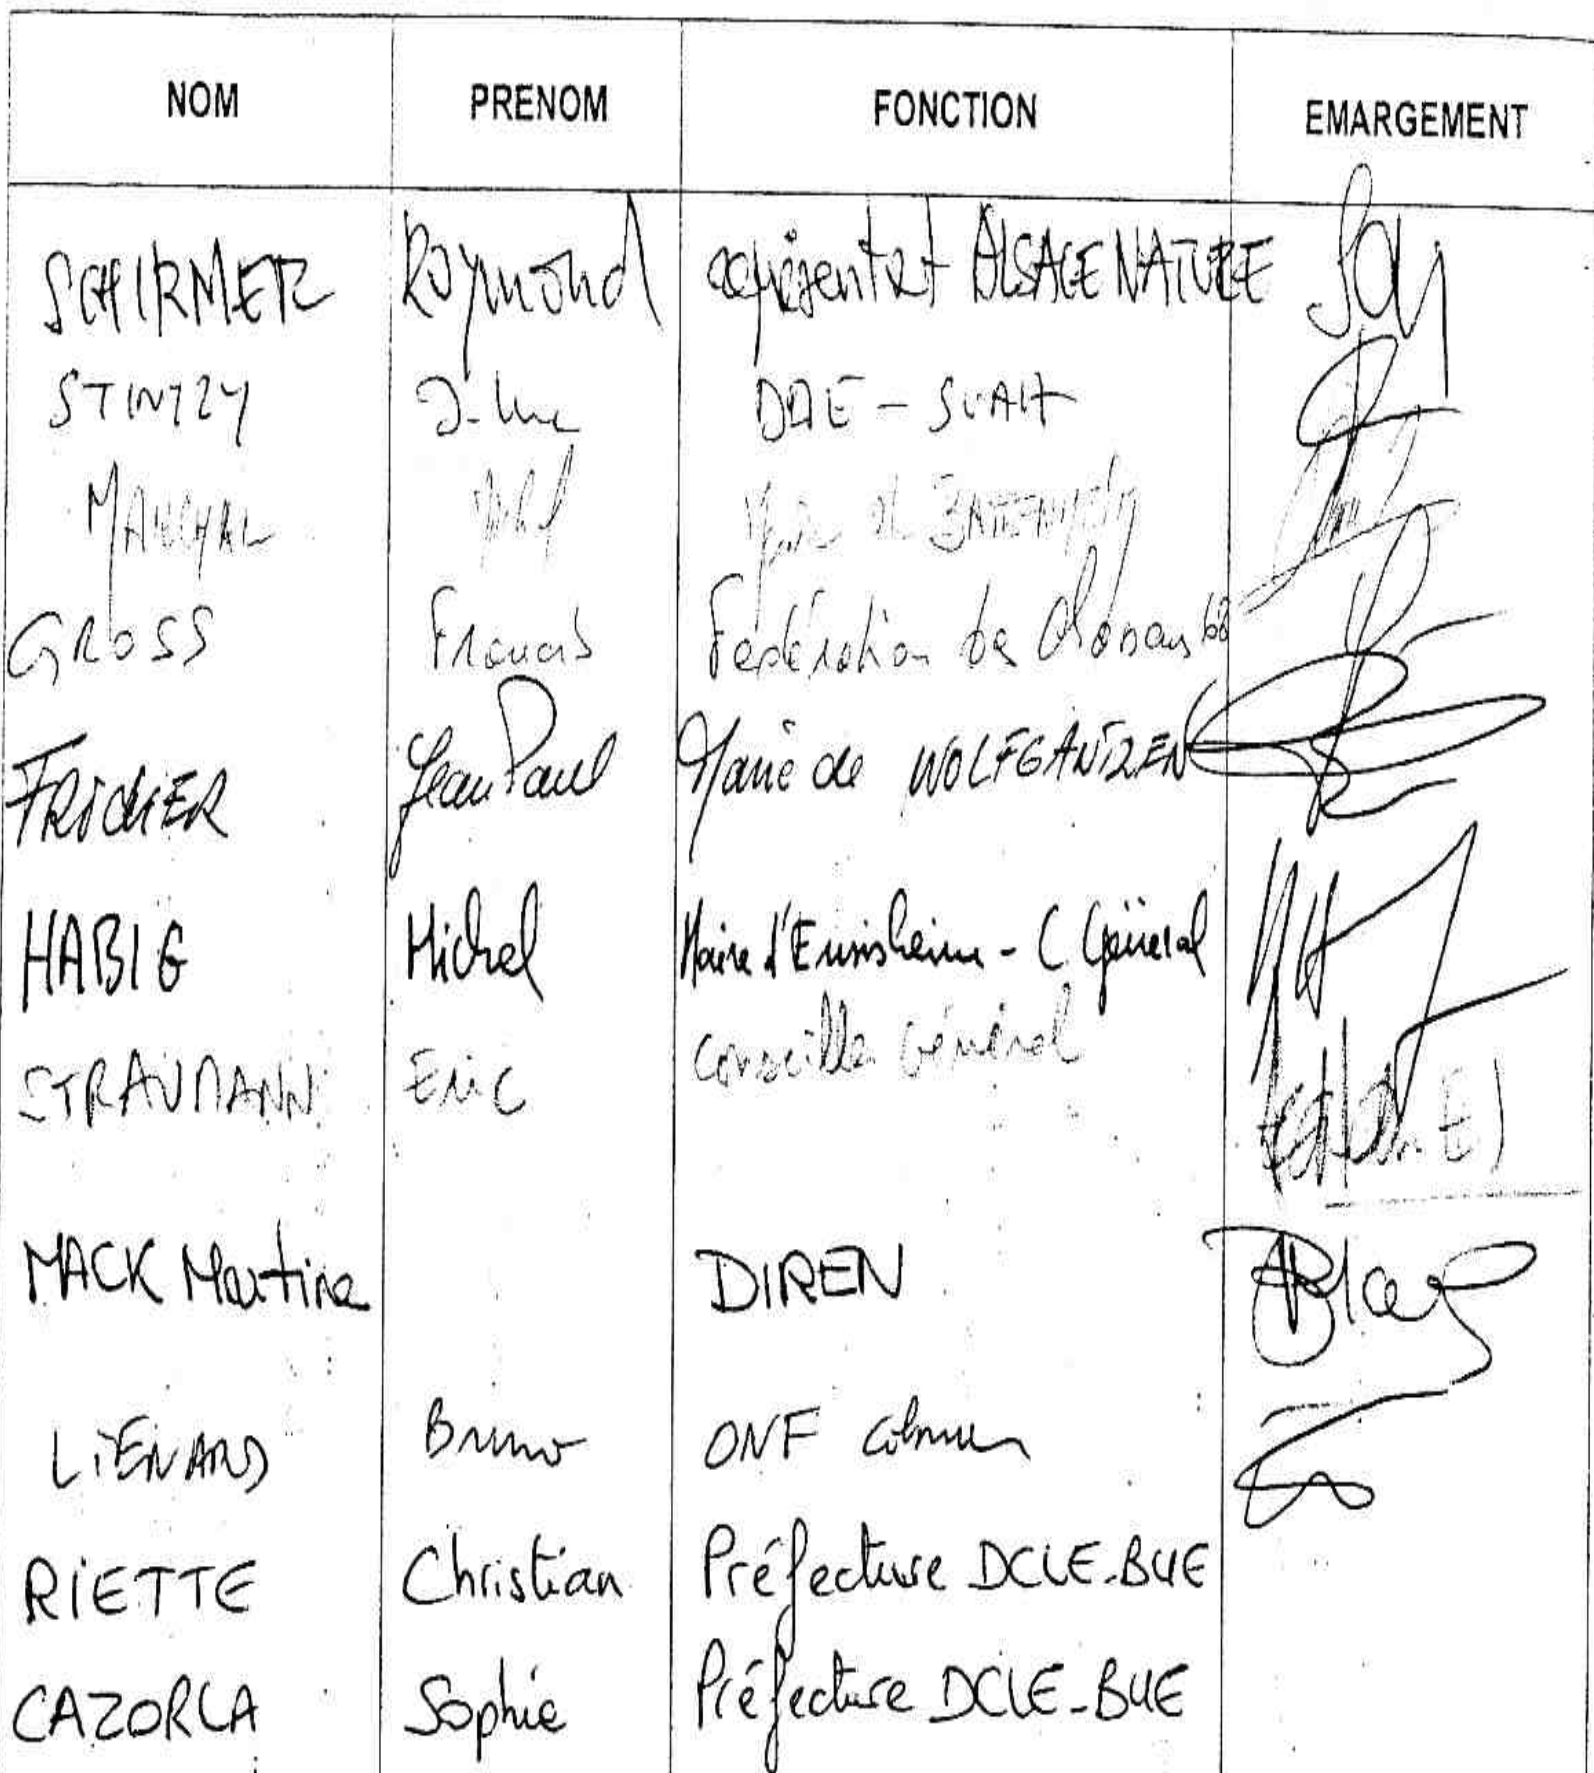 NOM PRENOM FONCTION EMARGEMENT
SCHIRMER Raymond représentant ALSACE NATURE
STINTZY J-Luc DDE - SUAH
GROSS Francis Fédération des Chasseurs 68
FRICKER Jean Paul Maire de WOLFGANTZEN
HABIG Michel Maire d'Ensisheim - C Général
STRAUMANN Eric Conseiller Général
MACK Martine DIREN
LiENARD Bruno ONF Colmar
RiETTE Christian Préfecture DCLE-BUE
CAZORLA Sophie Préfecture DCLE-BUE